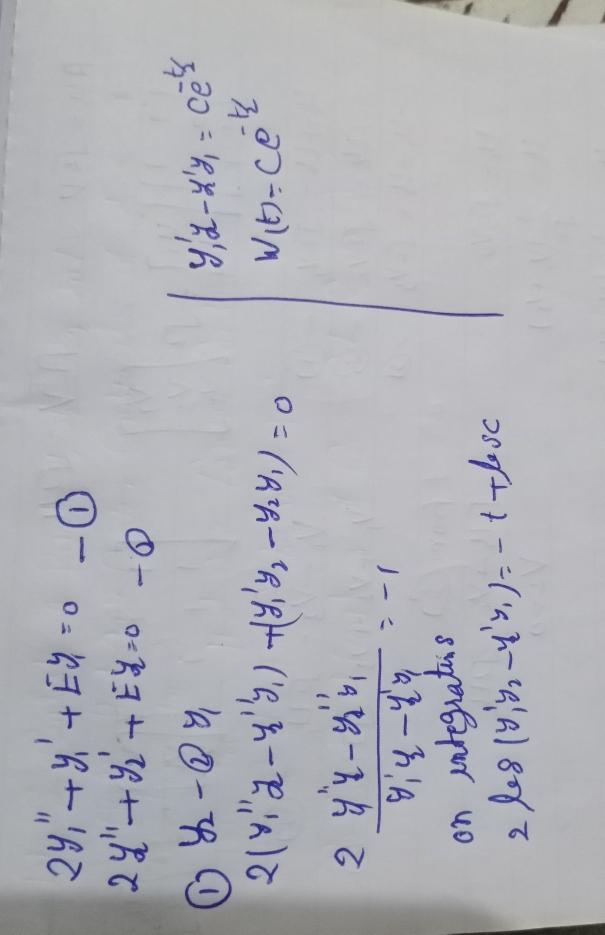 2y₁'' + y₁' + Ey₁ = 0 — ①
2y₂'' + y₂' + Ey₂ = 0 — ②
① y₂ − ② y₁
2(y₁''y₂ − y₂''y₁) + (y₁'y₂ − y₂'y₁) = 0
2 (y₁''y₂ − y₂''y₁) / (y₁'y₂ − y₂'y₁) = −1
on integrating
2 log(y₁'y₂ − y₂'y₁) = −t + log c
y₁'y₂ − y₂'y₁ = Ce^(−t/2)
W(t) = Ce^(−t/2)